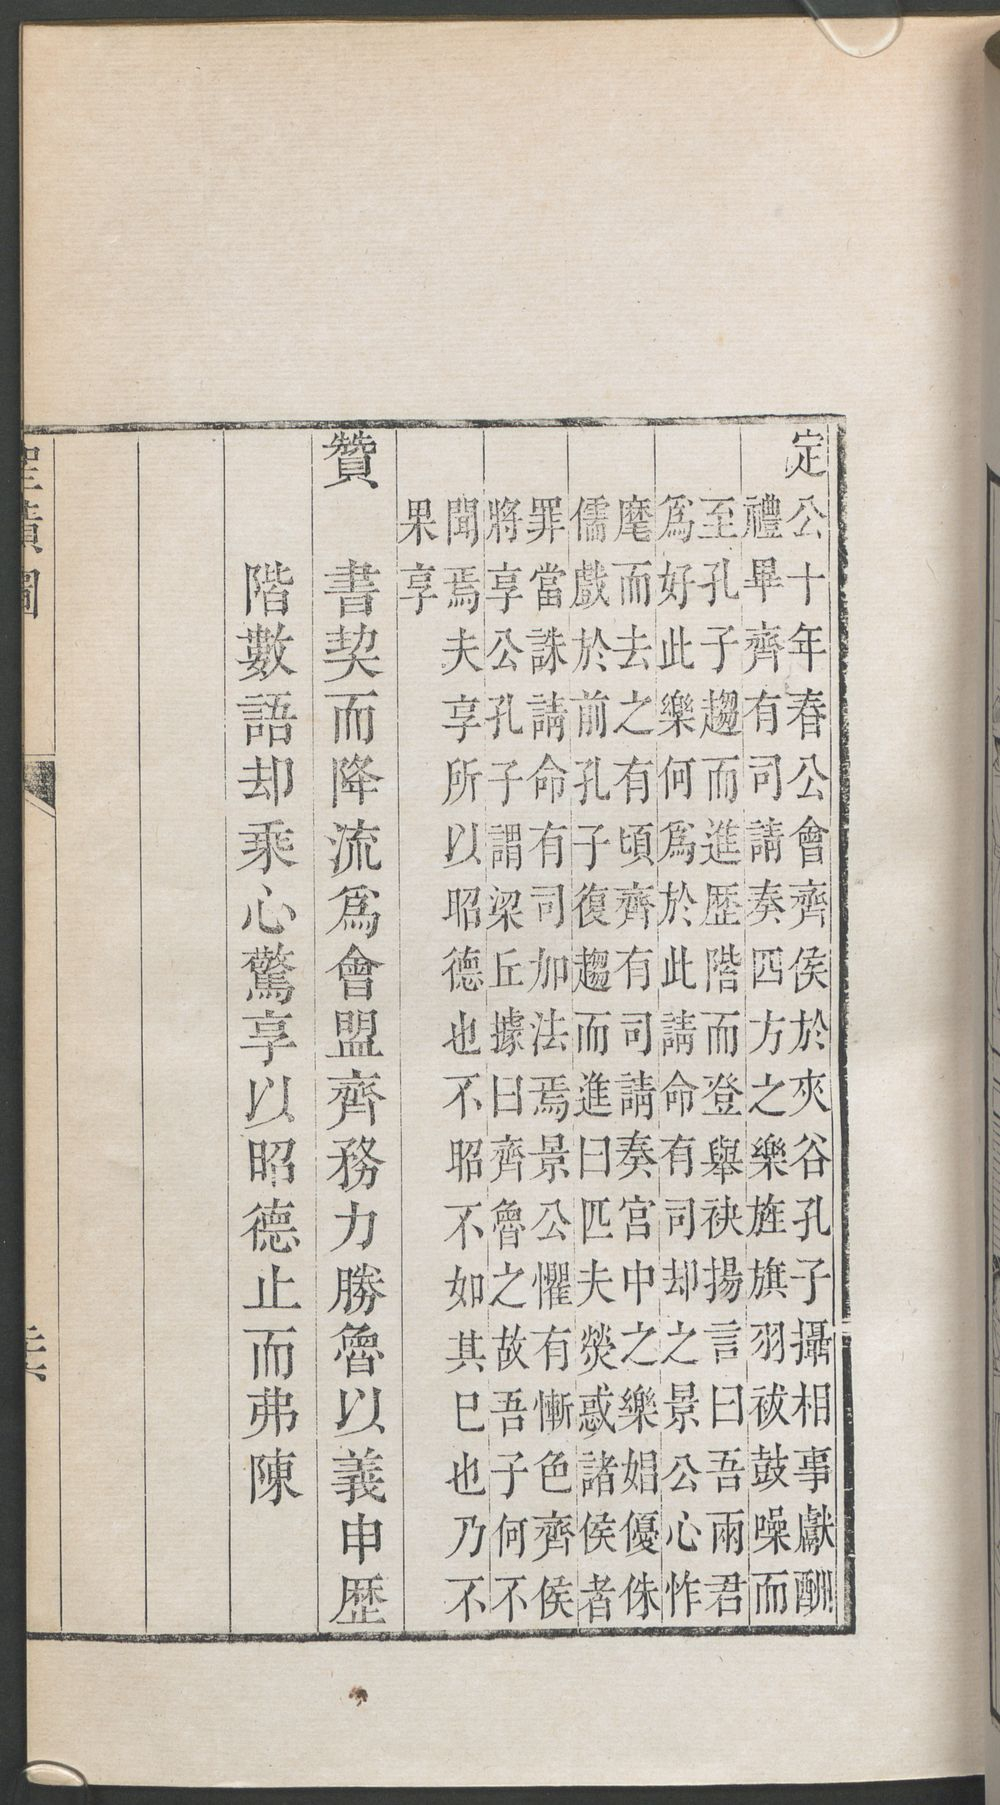 定公十年春公會齊侯於夾谷孔子攝相事獻酬
禮畢齊有司請奏四方之樂旌旗羽袚鼓噪而
至孔子趨而進歷階而登舉袂揚言曰吾兩君
爲好此樂何爲於此請命有司却之景公心怍
麾而去之有頃齊有司請奏宮中之樂娼優侏
儒戲於前孔子復趨而進曰匹夫熒惑諸侯者
罪當誅請命有司加法焉景公懼有慚色齊侯
將享公孔子謂梁丘據曰齊魯之故吾子何不
聞焉夫享所以昭德也不昭不如其巳也乃不
果享
贊
書契而降流爲會盟齊務力勝魯以義申歷
階數語却乘心驚享以昭德止而弗陳
聖蹟圖